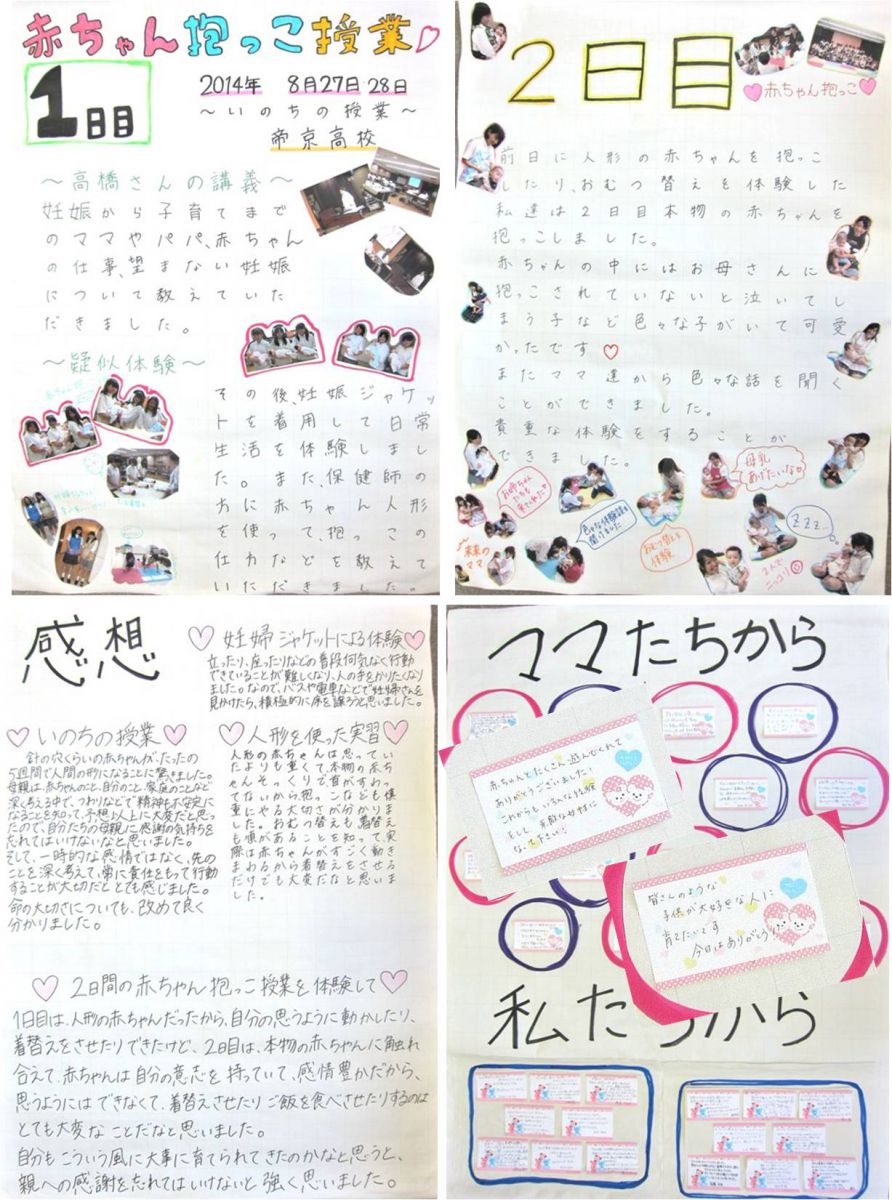 赤ちゃん抱っこ授業♡
1日目
2014年 8月27日28日
～いのちの授業～
帝京高校
～高橋さんの講義～
妊娠から子育てまで
のママやパパ、赤ちゃん
の仕事、望まない妊娠
について教えていた
だきました。
～疑似体験～
その後妊娠ジャケッ
トを着用して日常
生活を体験しまし
た。また、保健師の
方に赤ちゃん人形
を使って、抱っこの
仕方などを教えて
いただきました。
2日目
♡赤ちゃん抱っこ♡
前日に人形の赤ちゃんを抱っこ
したり、おむつ替えを体験した
私達は2日目本物の赤ちゃんを
抱っこしました。
赤ちゃんの中にはお母さんに
抱っこされていないと泣いてし
まう子など色々な子がいて可愛
かったです♡
またママ達から色々な話を聞く
ことができました。
貴重な体験をすることが
できました。
お姉ちゃん
たちも
来てくれた♡
色々な体験談を
聞けました
母乳
あげたいな♡
おむつ替えも
体験
ZZZ...
未来の
ママ
2人で
ニッコリ
感想
♡妊婦ジャケットによる体験♡
立ったり、座ったりなどの普段何気なく行動
できていることが難しくなり、人の手をかりたくなり
ました。なので、バスや電車などで妊婦さんを
見かけたら、積極的に席を譲ろうと思いました。
♡いのちの授業♡
針の穴くらいの赤ちゃんが、たったの
5週間で人間の形になることに驚きました。
母親は、赤ちゃんのこと、自分のこと、家庭のことなど
深く考える中で、つわりなどで精神も不安定に
なることを知って、予想以上に大変だと思っ
たので、自分たちの母親に感謝の気持ちを
忘れてはいけないなと思いました。
そして、一時的な感情ではなく、先の
ことを深く考えて、常に責任をもって行動
することが大切だととても感じました。
命の大切さについても、改めて良く
分かりました。
♡人形を使った実習♡
人形の赤ちゃんは思ってい
たよりも重くて、本物の赤ち
ゃんそっくりで首がすわっ
てないから抱っこなども慎
重にやる大切さが分かりまし
た。おむつ替えも着替え
も順があることを知って、実
際は赤ちゃんがすごく動き
まわるから着替えをさせる
だけでも大変だなと思いまし
た。
♡2日間の赤ちゃん抱っこ授業を体験して♡
1日目は、人形の赤ちゃんだったから、自分の思うように動かしたり、
着替えをさせたりできたけど、2日目は、本物の赤ちゃんに触れ
合えて、赤ちゃんは自分の意志を持っていて、感情豊かだから、
思うようにはできなくて、着替えさせたりご飯を食べさせたりするのは
とても大変なことだなと思いました。
自分もこういう風に大事に育てられてきたのかなと思うと、
親への感謝を忘れてはいけないと強く思いました。
ママたちから
赤ちゃんとたくさん遊んでくれて
ありがとうございました。
これからもいろんな経験
をして、素敵なママに
なって下さい!
皆さんのような
子供が大好きな人に
育てたいです
今日はありがとう
私たちから